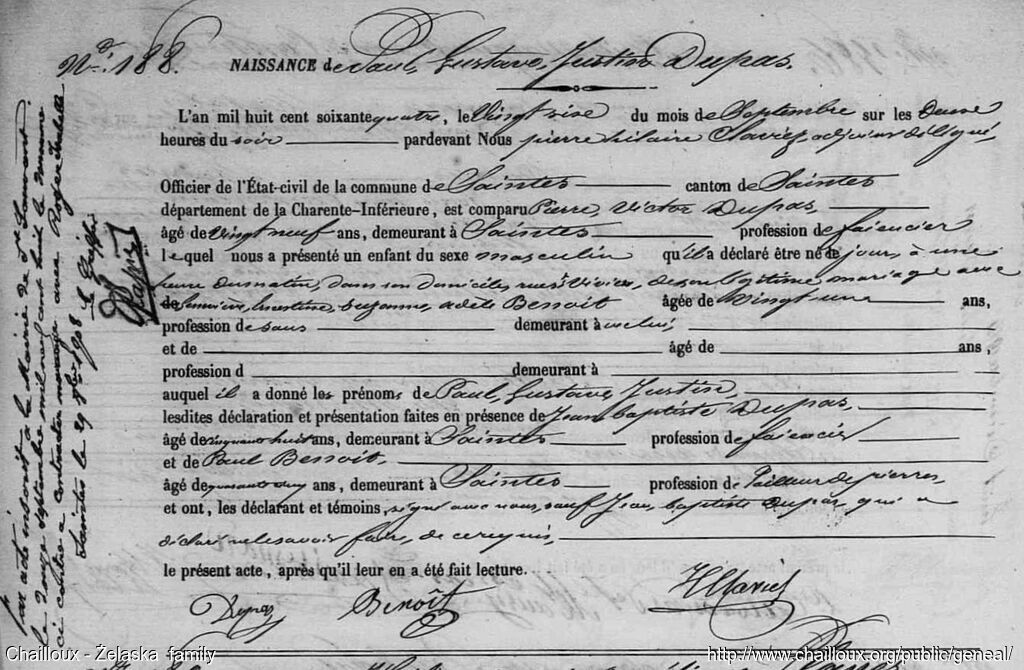 Nº. 188.
NAISSANCE de Paul, Gustave, Justin Dupas.
L'an mil huit cent soixante quatre, le Vingt six du mois de Septembre sur les Deux
heures du soir pardevant Nous pierre hilaire Clavier, adjoint délégué,
Officier de l'État-civil de la commune de Saintes canton de Saintes
département de la Charente-Inférieure, est comparu Pierre, Victor Dupas,
âgé de Vingt neuf ans, demeurant à Saintes profession de faïencier
lequel nous a présenté un enfant du sexe masculin qu'il a déclaré être né de ce jour, à une
heure du matin, dans son domicile, rue St Vivien, de son légitime mariage avec
de Ernestine, Suzanne, adèle Benoit âgée de Vingt une ans,
profession de sans demeurant à avec lui,
et de âgé de ans,
profession d demeurant à
auquel il a donné les prénoms de Paul, Gustave, Justin,
lesdites déclaration et présentation faites en présence de Jean baptiste Dupas,
âgé de cinquante huit ans, demeurant à Saintes profession de faïencier
et de Paul Benoit,
âgé de quarante cinq ans, demeurant à Saintes profession de Tailleur de pierres
et ont, les déclarant et témoins, signé avec nous, sauf Jean baptiste Dupas, qui a
déclaré ne le savoir faire, de ce requis,
le présent acte, après qu'il leur en a été fait lecture.
Dupas Benoît HClavier
par acte inscrit à la Mairie de
le douze septembre mil neuf cent huit le nommé
ci contre a contracté mariage avec
Saintes le 29 7bre 1908 le Greffier
Chailloux - Żelaska family
http://www.chailloux.org/public/geneal/